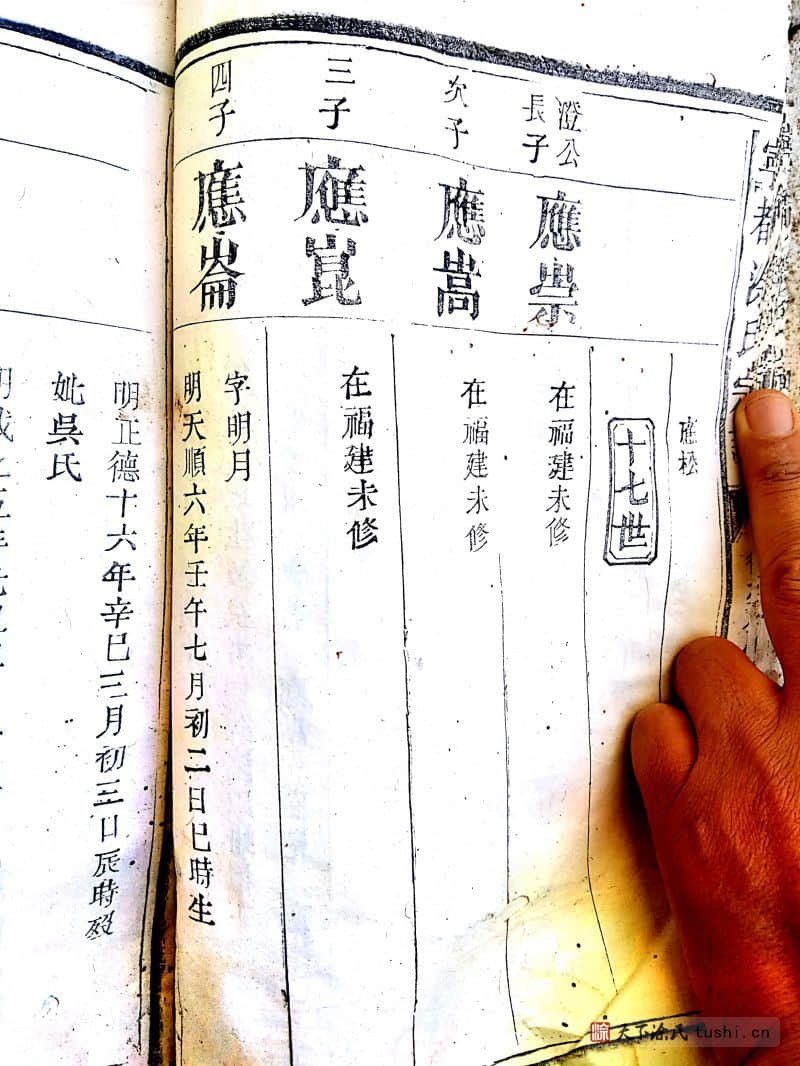 寧都涂氏
應松
十七世
澄公
長子
應崇
在福建未修
次子
應嵩
在福建未修
三子
應崑
在福建未修
四子
應崙
字明月
明天順六年壬午七月初二日巳時生
明正德十六年辛巳三月初三日辰時歿
妣吳氏
天下涂氏 tushi.cn